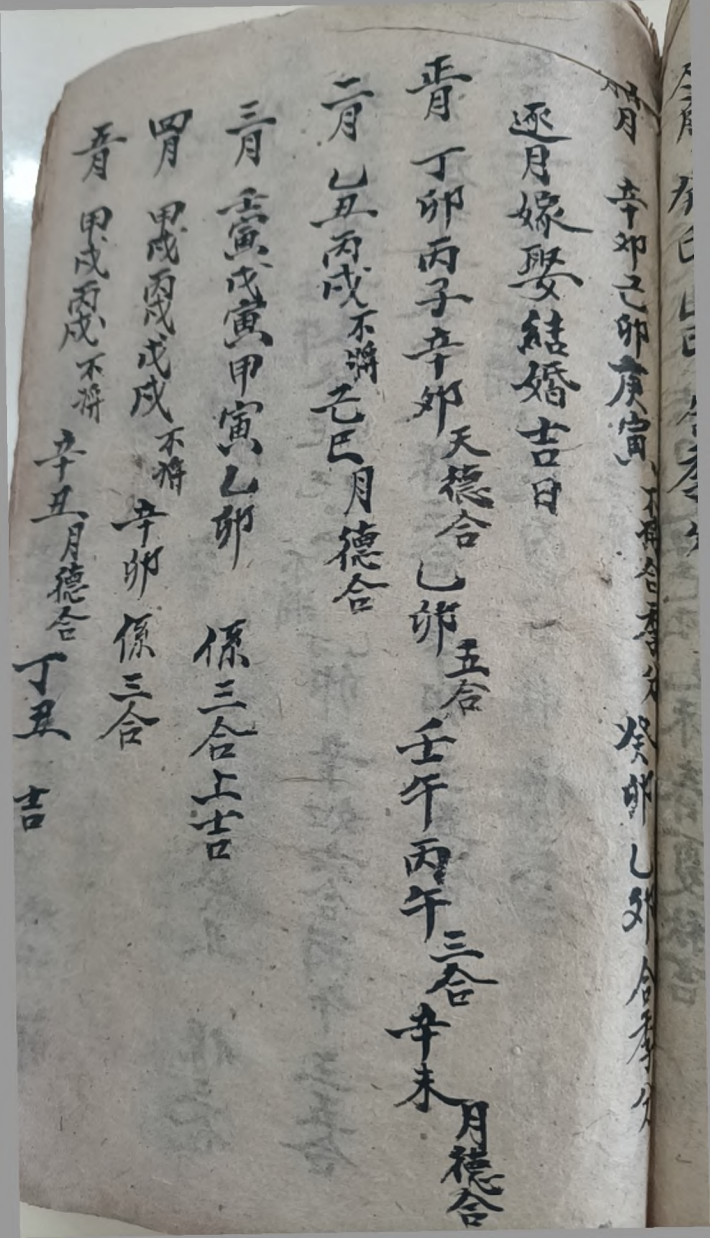 月 辛卯己卯庚寅不將合季分癸卯乙卯合季分
逐月嫁娶結婚吉日
正月 丁卯丙子辛卯天德合乙卯五合壬午丙午三合辛未月德合
二月 乙丑丙戌不將己巳月德合
三月 壬寅戊寅甲寅乙卯 係三合上吉
四月 甲戌丙戌戊戌不將辛卯 係三合
五月 甲戌丙戌不將辛丑月德合丁丑 吉